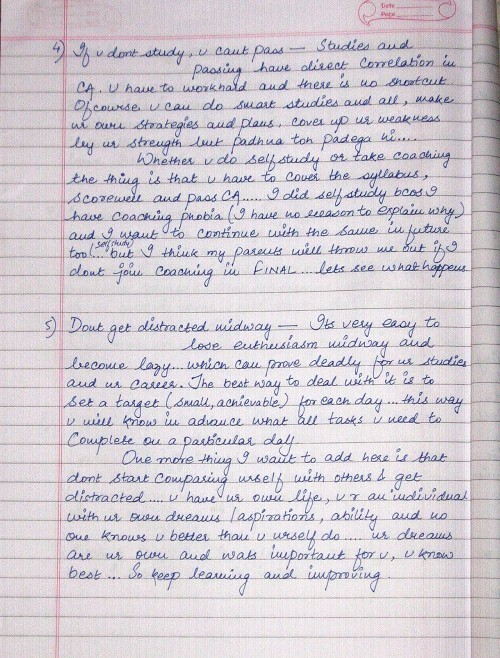 Date
Page
4) If u dont study, u cant pass — Studies and
Passing have direct correlation in
CA. U have to workhard and there is no shortcut.
Ofcourse u can do smart studies and all, make
ur own strategies and plans, cover up ur weakness
by ur strength but padhna toh padega hi....
Whether u do selfstudy or take coaching
the thing is that u have to cover the syllabus,
scorewell and pass CA..... I did self study bcos I
have coaching phobia (I have no reason to explain why)
and I want to continue with the same in future
(self study)
too!... but I think my parents will throw me out if I
dont join coaching in FINAL ....lets see what happens
5) Dont get distracted midway — Its very easy to
lose enthusiasm midway and
become lazy... which can prove deadly for ur studies
and ur career. The best way to deal with it is to
set a target (small, achievable) for each day... this way
u will know in advance what all tasks u need to
complete on a particular day.
One more thing I want to add here is that
dont start comparing urself with others & get
distracted.... u have ur own life, u r an individual
with ur own dreams / aspirations, ability and no
one knows u better than u urself do .... ur dreams
are ur own and wats important for u, u know
best ... So keep learning and improving.